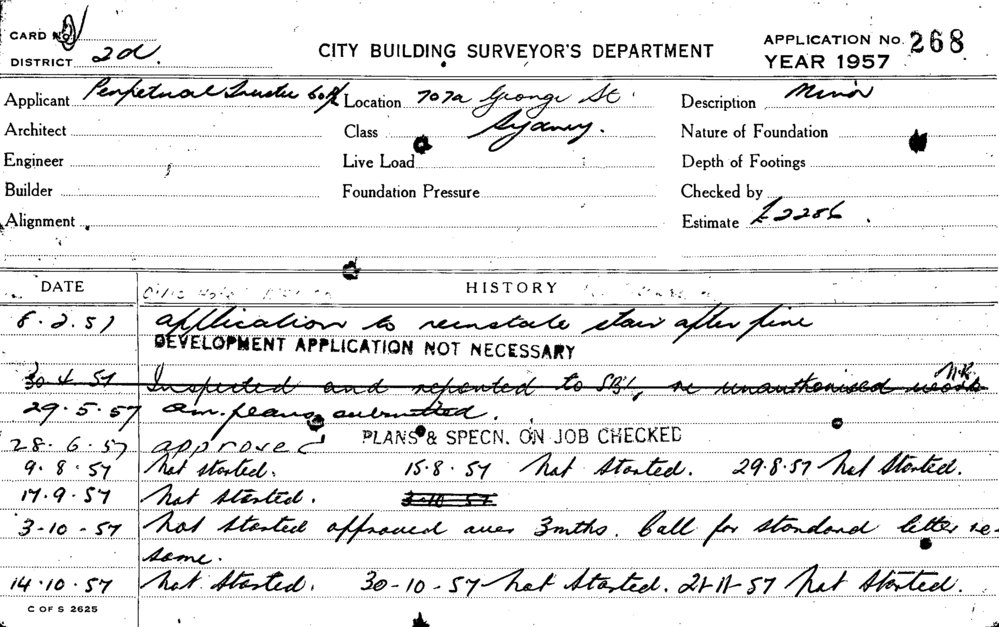 CARD No. CITY BUILDING SURVEYOR'S DEPARTMENT APPLICATION No. 268
DISTRICT 2d. YEAR 1957
Applicant Perpetual Trustee Co P/L Location 707a George St. Description Minor
Architect Class Sydney. Nature of Foundation
Engineer Live Load Depth of Footings
Builder Foundation Pressure Checked by
Alignment Estimate £2286.
DATE HISTORY
8.2.57 application to reinstate stair after fire
DEVELOPMENT APPLICATION NOT NECESSARY
30 4 57 Inspected and reported to SBI, re unauthorised work N.K.
29.5.57 am. plans submitted.
28.6.57 approved PLANS & SPECN. ON JOB CHECKED
9.8.57 Not started. 15.8.57 Not started. 29.8.57 Not started.
17.9.57 Not started. 3-10-57
3-10-57 Not started approved over 3mths. Call for standard letter re-
same.
14.10.57 Not started. 30-10-57 Not started. 21-11-57 Not started.
C OF S 2625